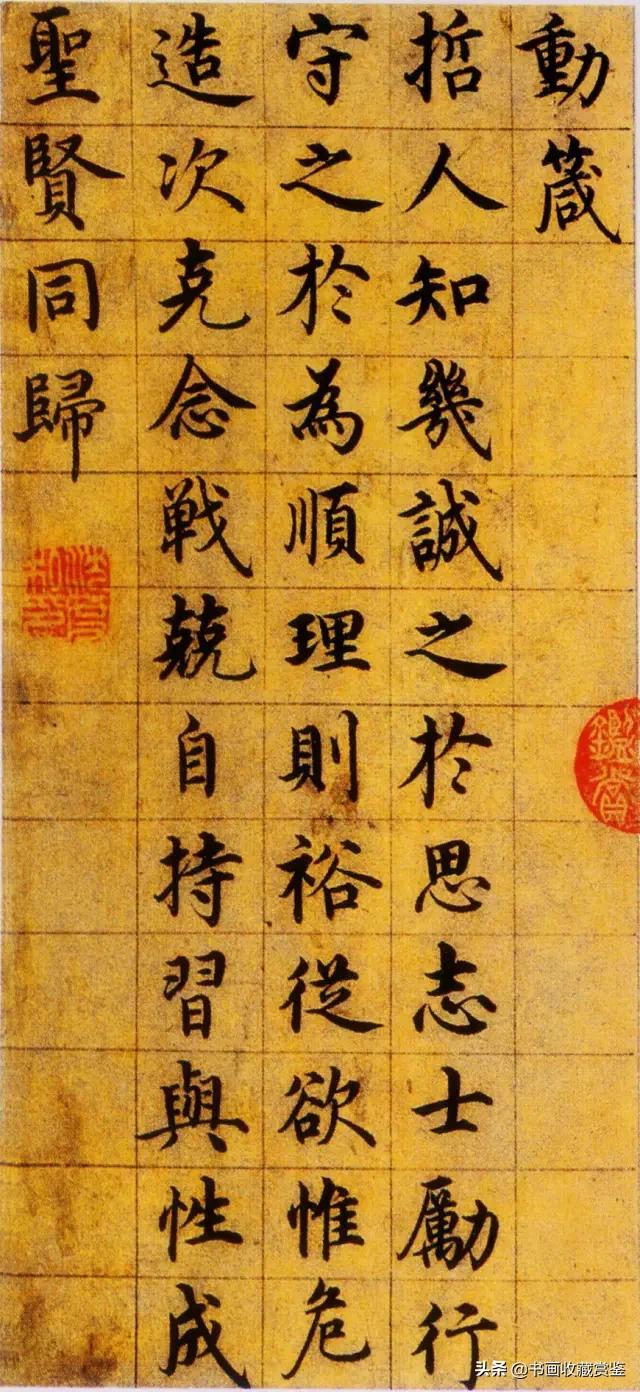 動箴
哲人知幾誠之於思志士勵行
守之於為順理則裕從欲惟危
造次克念戰兢自持習與性成
聖賢同歸
鑑賞
头条 @书画收藏赏鉴